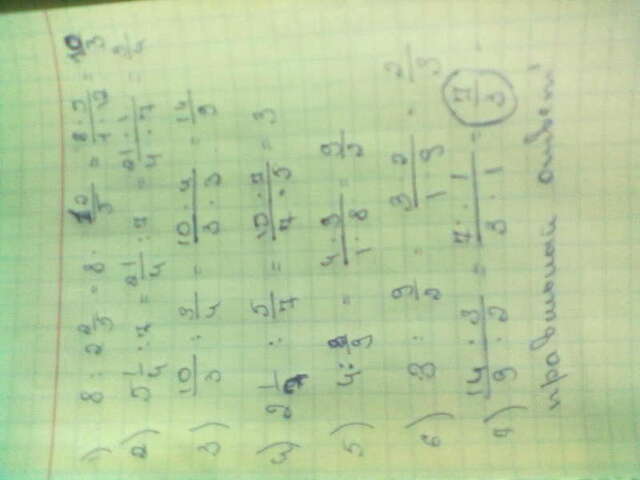 1) 8 : 2 2/5 = 8 : 12/5 = 8·5/1·12 = 10/3
2) 5 1/4 : 7 = 21/4 : 7 = 21·1/4·7 = 3/4
3) 10/3 : 3/4 = 10·4/3·3 = 14/9
4) 2 1/7 : 5/7 = 15·7/7·5 = 3
5) 4 : 8/9 = 4·9/1·8 = 9/2
6) 3 : 9/2 = 3·2/1·9 = 2/3
7) 14·3/9·2 = 7·1/3·1 = 7/3
правильный ответ!